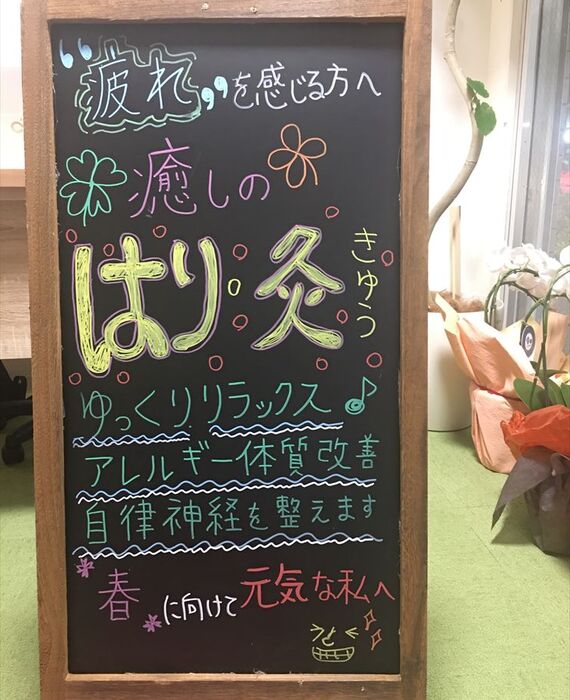 “疲れ”を感じる方へ
癒しの
はり・灸
きゅう
ゆっくりリラックス♪
アレルギー体質改善
自律神経を整えます
春に向けて元気な私へ